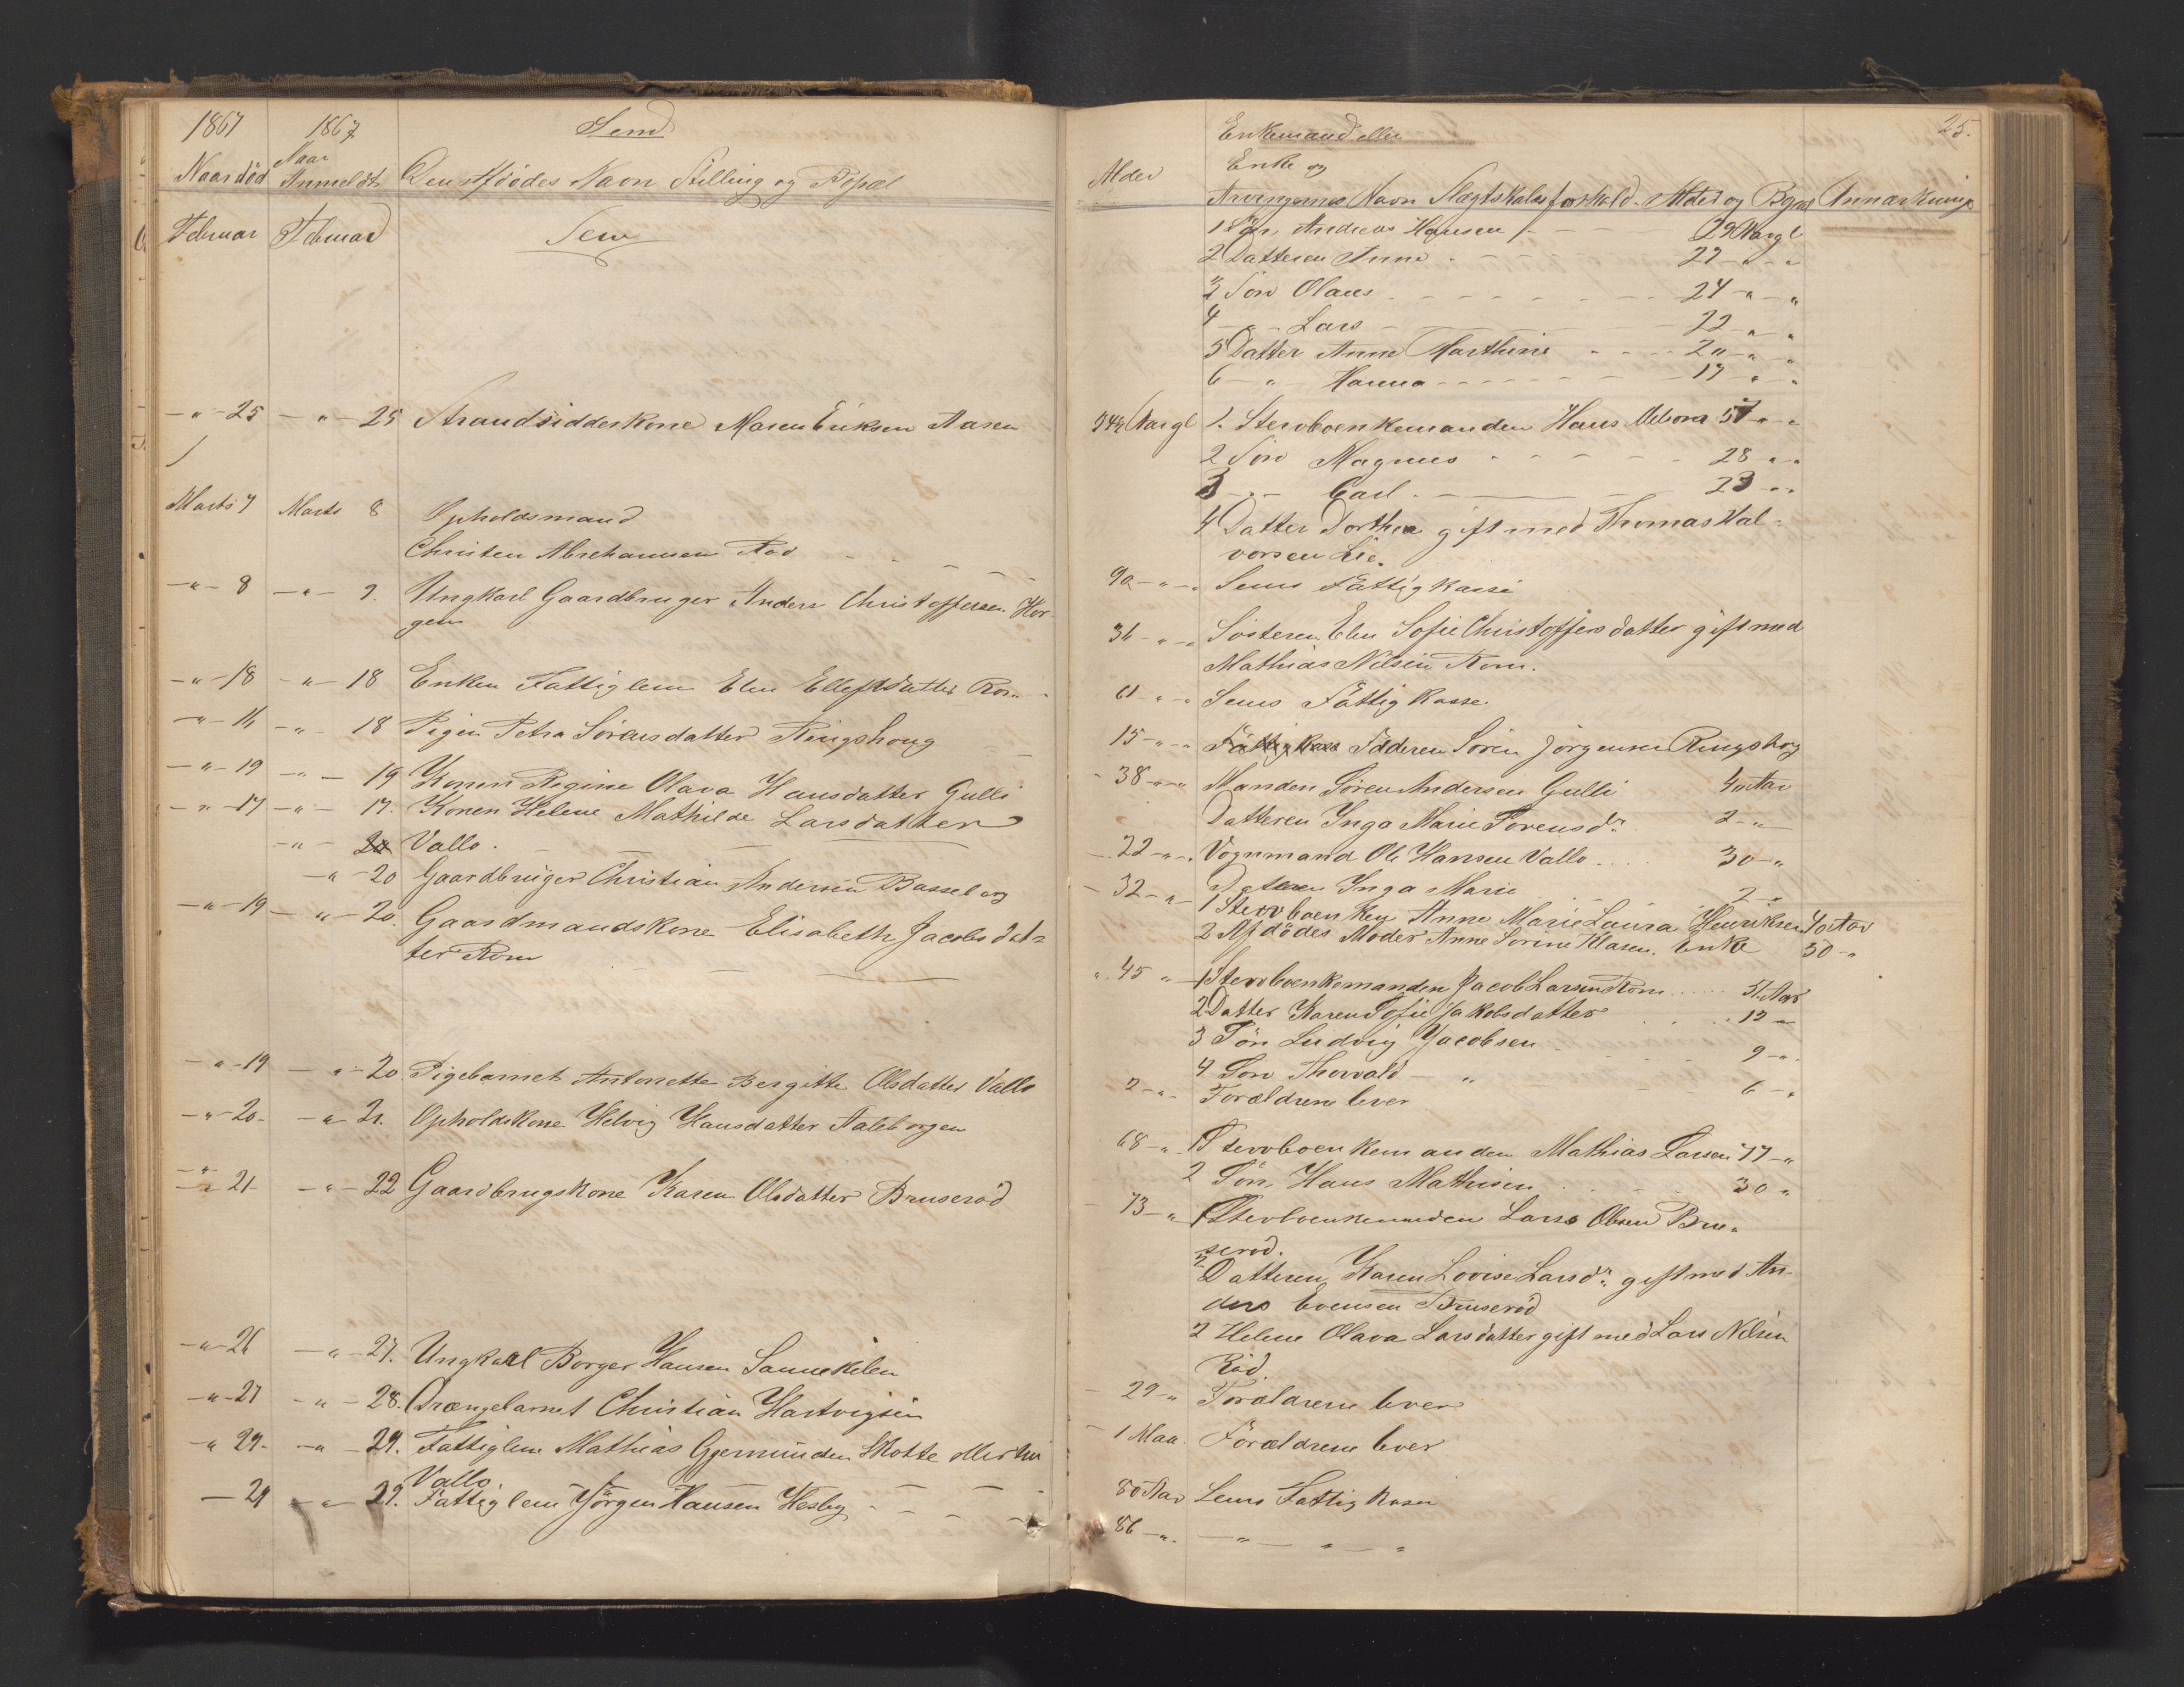 1867 1867 Sem
Naar død Naar Anmeldt Den Afdødes Navn Stilling og Bopæl
Februar Februar Sem
-"- 25 -"- 25 Strandsidderkone Maren Eriksen Aasen
Marts 7 Marts 8 Opholdsmand
Christen Abrehamsen Rød
-"- 8 -"- 9. Ungkarl Gaardbruger Anders Christoffersen Hor-
gen
-"- 18 -"- 18 Enken Fattiglem Elen Ellefsdatter Rom
-"- 16 -"- 18 Pigen Petra Sörensdatter Ringshoug
-"- 19 -"- 19 Konen Regine Olava Hansdatter Gulli
-"- 17 -"- 17. Konen Helene Mathilde Larsdatter
-"- 20 Vallo.
-"- 20 Gaardbruger Christian Andersen Basseberg
-"- 19 -"- 20. Gaardmandskone Elisabeth Jacobsdat-
ter Rom
-"- 19 -"- 20. Pigebarnet Antonette Bergitte Olsdatter Vallo
-"- 20. -"- 21. Opholdskone Helvig Hansdatter Aaleborgen
-"- 21 -"- 22 Gaardbrugskone Karen Olsdatter Bruseröd
-"- 26 -"- 27. Ungkarl Borger Hansen Sannekilen
-"- 27 -"- 28. Drængebarnet Christian Hartvigsen
-"- 29. -"- 29. Fattiglem Mathias Gjermundsen
Vallo
- 29 -"- 29. Fattiglem Jörgen Hansen Hesby
25.
Enkemand eller
Alder Enke og
Arvingernes Navn Slægtskabsforhold. Alder og Bopæl Anmærkning
1 Søn Andreas Hansen 29 Aargl
2 Datteren Anne 27 - " - "
3 Søn Olaus 24 - " - "
4 - " - Lars 22 - " - "
5 Datter Anne Marthine 20 - " - "
6 - " - Hanna 17 - " - "
Aargl 1. Stervboenkemanden Hans 57 - " - "
2 Søn Magnus 28 - " - "
3 - " - Carl 23 - " - "
4 Datter Dorthea gift med Thomas Hal-
vorsen Lie.
90 - " - " Sems Fattigkasse
36 - " - " Søsteren Elen Sofie Christoffersdatter gift med
Mathias Nilsen Rom.
61 - " - " Sems Fattigkasse.
15 - " - " Faderen Sören Jörgensen Ringshog
38 - " - " Manden Sören Andersen Gulli 40 Aar
Datteren Inga Marie Sörensdr. 2 - "
22 - " - " Vognmand Ole Hansen Vallo 30 - "
Datteren Inga Marie 2 - "
32 - " - 1 Stervboenken Anne Marie Laura Henriksen 40 Aar
2 Afdödes Moder Anne Sorine Klasen. Enke 50 - "
" 45 " - 1 Stervboenkemanden Jacob Larsen Rom 51 Aar
2 Datter Karen Sofie Jakobsdatter 12 - "
3 Sön Ludvig Jacobsen 9 - "
4 Sön Thorvald - " 6 - "
2 - " - Forældrene lever
68 - " - 1 Stervboenkemanden Mathias Larsen 77 - "
2 Sön Hans Mathisen 30 "
73 - " 1 Stervboenkemanden Lars Olsen Bru-
seröd.
2 Datteren Karen Lovise Larsdr. gift med An-
ders Evensen Bruseröd
2 Helene Olava Larsdatter gift med Lars Nilsen
Röd.
29 - " Forældrene lever
1 Maa. Forældrene lever
80 Aar Sems Fattigkasse
86 - " - " - " - "